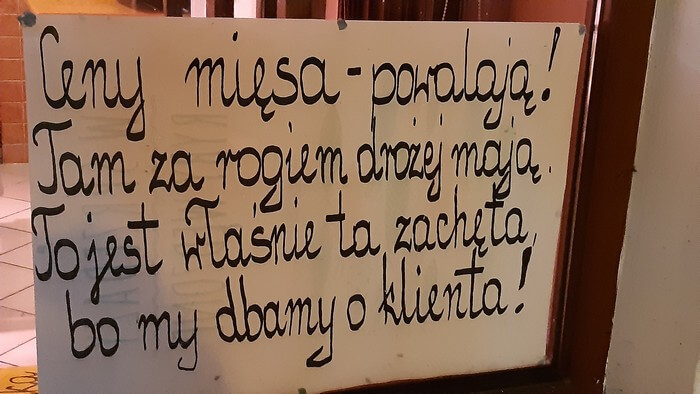 Ceny mięsa - powalają!
Tam za rogiem drożej mają.
To jest właśnie ta zachęta,
bo my dbamy o klienta!